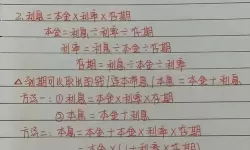 2.利息=本金×利率×存期
本金=利息÷利率÷存期
利率=利息÷本金÷存期
存期=利息÷本金÷利率
△到期可以取出的钱/连本带息/本息=本金+利息
方法一:①利息=本金×利率×存期
②本息=本金+利息
方法二:本息=本金+本金×利率×存期
=本金×(1+利率×存期)